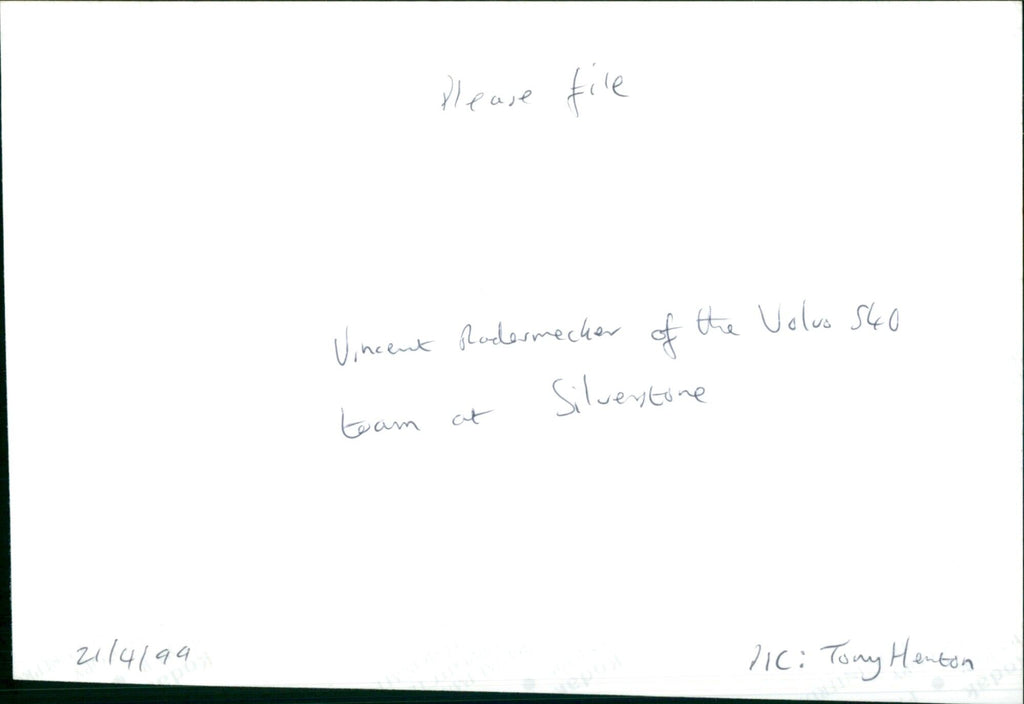 Please file
Vincent Radermecker of the Volvo S40
team at Silverstone
21/4/99
PIC: Tony Henton